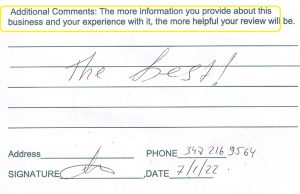 Additional Comments: The more information you provide about this
business and your experience with it, the more helpful your review will be.
The best!
Address PHONE 347 216 9564
SIGNATURE DATE 7/1/22